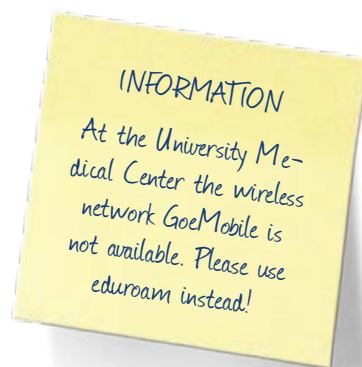 INFORMATION
At the University Me-
dical Center the wireless
network GoeMobile is
not available. Please use
eduroam instead!